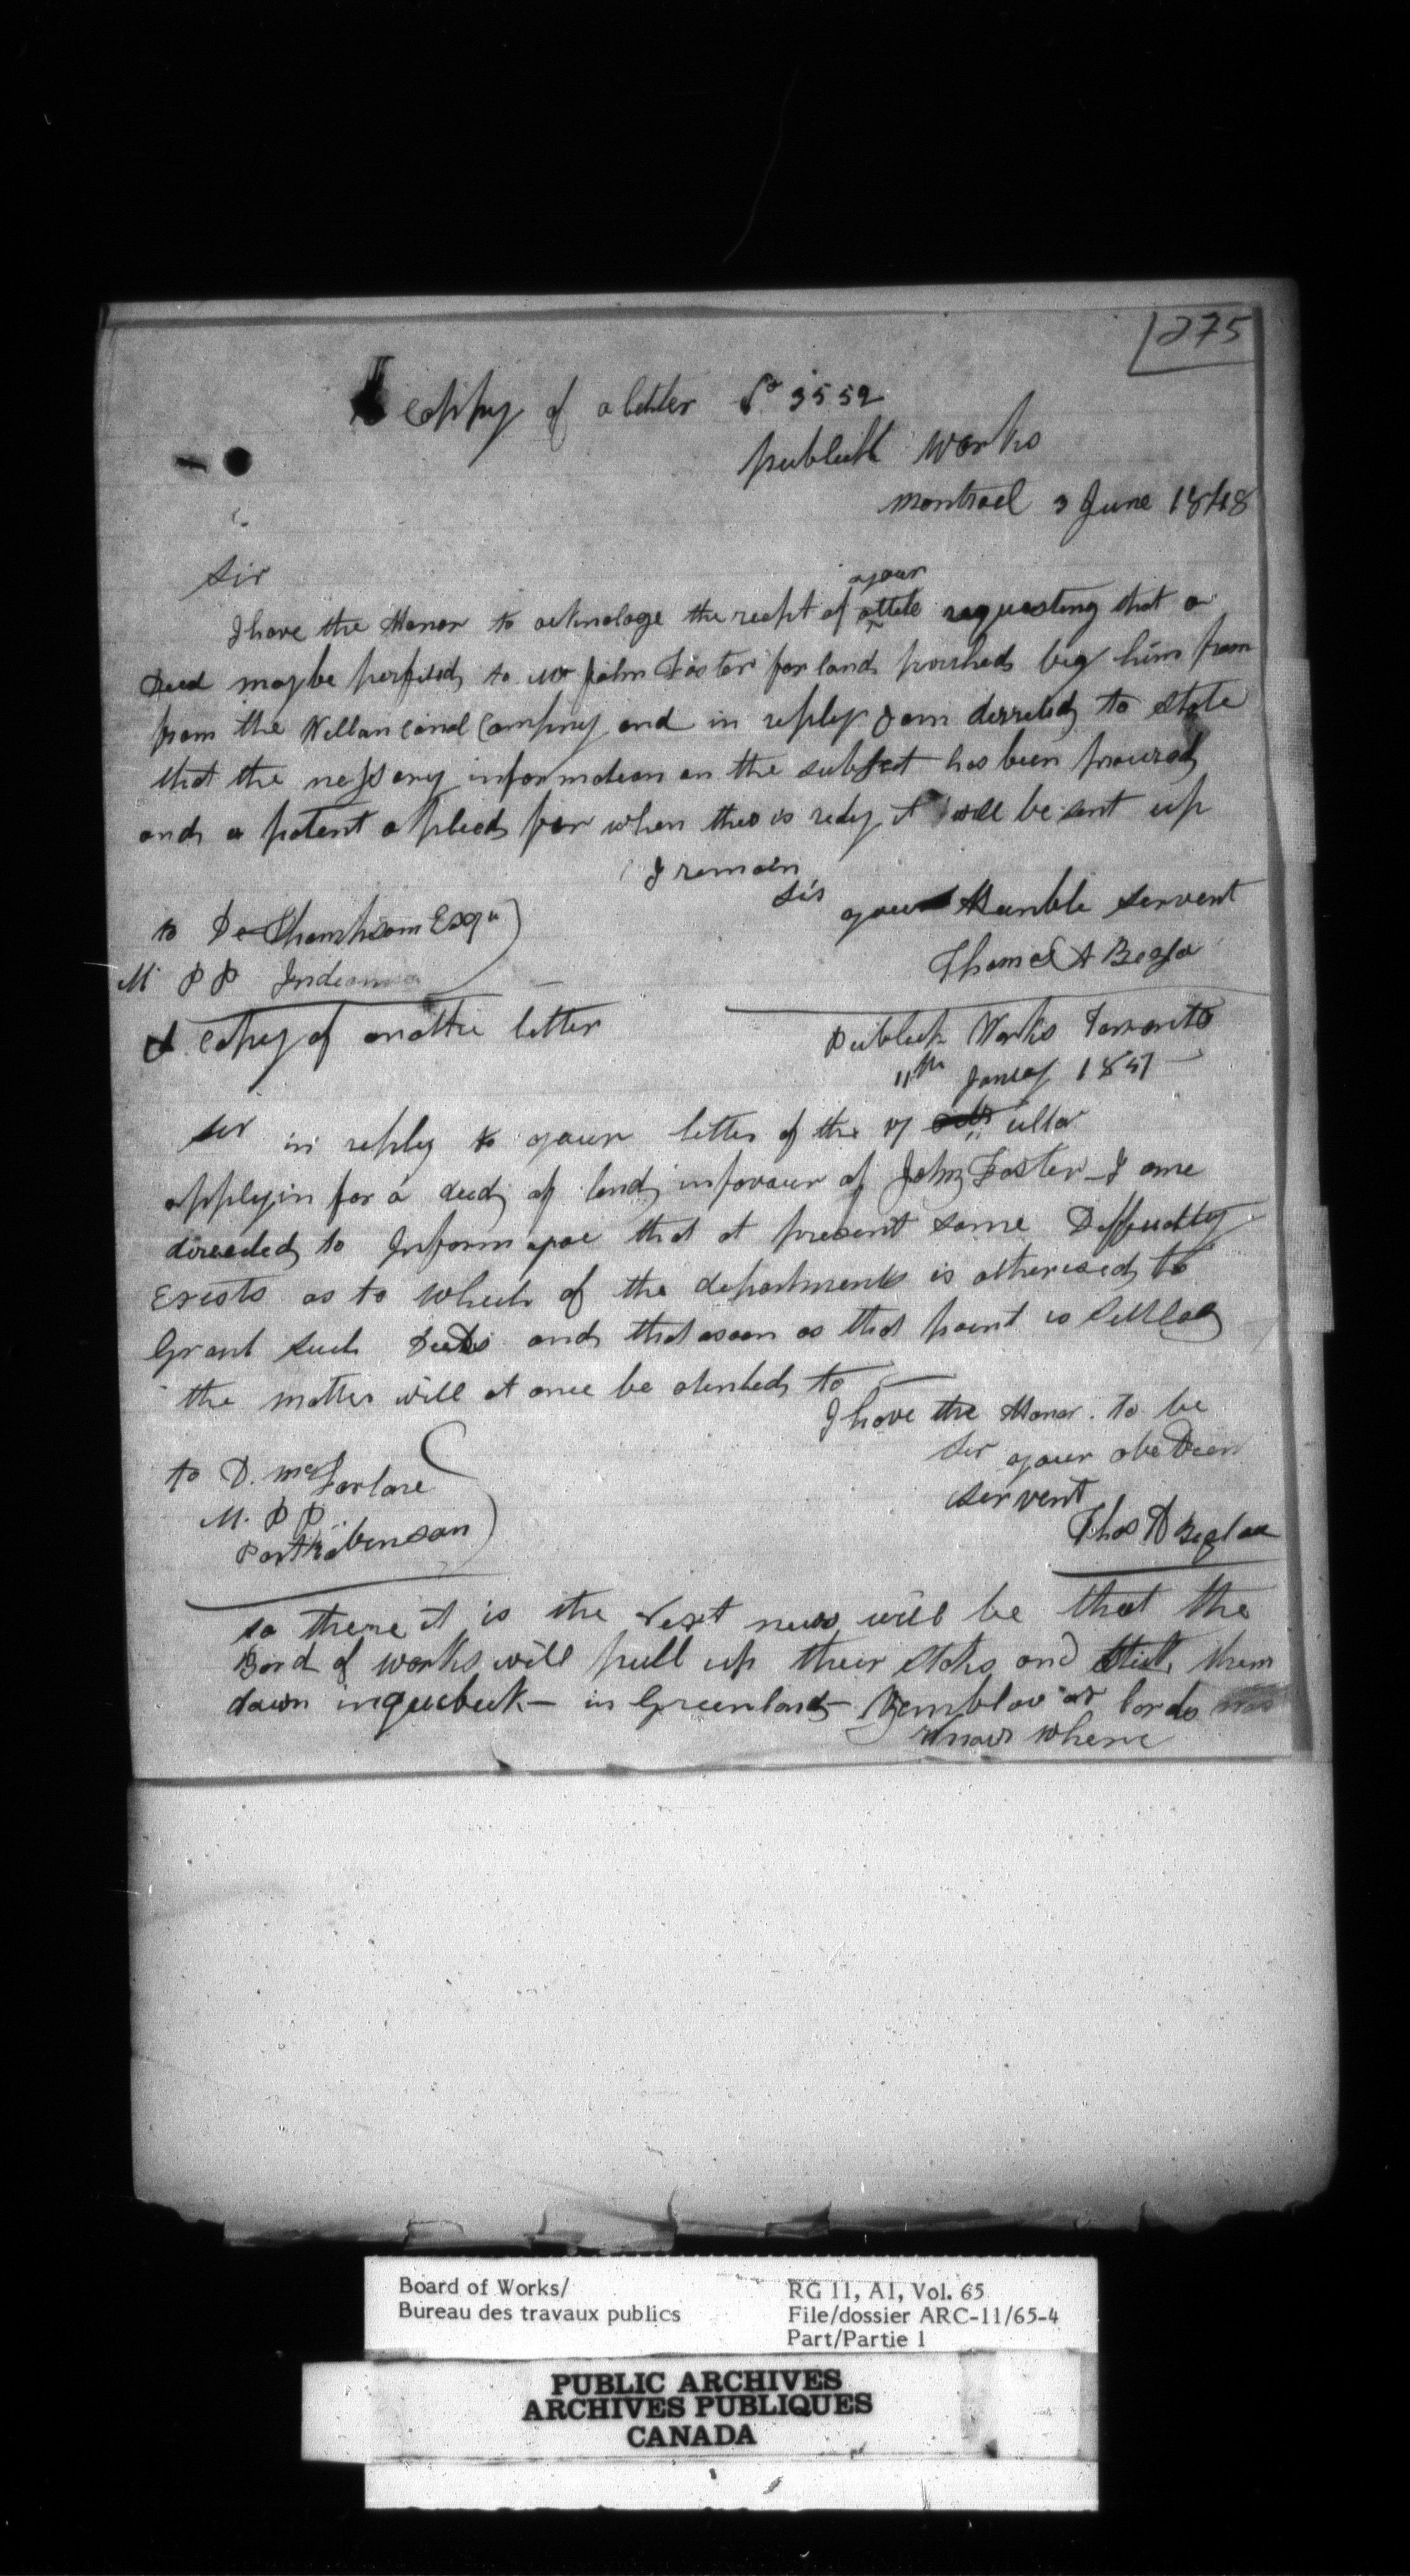 275
Coppy of a letter No 3552
publick works
montrael 3 June 1848
Sir
your
I have the Honor to acknologe the recpt of requesting that a
Deed may be perfited to Mr John Foster for land pourhed by him from
from the Wellan Canal Compny and in reply I am derrected to state
that the nessary informateon on the subject has been procured
and a patent applied for when this is redy it will be sent up
I remain
Sir
your Humble servent
to De Thomhsom Esqr
M P P Indeanna
Thomas A Begla
A Copey of anothe letter
Publick Works Toronto
11th Janey 1851
Sir in reply to your letter of the 17 ulto
applyin for a deed of land infavour of John Foster - I ame
direeded to Inform you that at present some Diffucilty
Exists as to which of the departments is atherised to
Grant such Deeds and that asoon as that point is settled
the matter will at once be atented to
I have the Honor to be
Sir your obe Dien
servent
to D. McFarlane
M. P P.
Port Robenson
Thos A Beglae
so there it is the next news will be that the
Bord of works will pull up their staks and stick them
down in quebeck - in Greenland - or lords
knows where
Board of Works/
Bureau des travaux publics
RG 11, A1, Vol. 65
File/dossier ARC-11/65-4
Part/Partie 1
PUBLIC ARCHIVES
ARCHIVES PUBLIQUES
CANADA